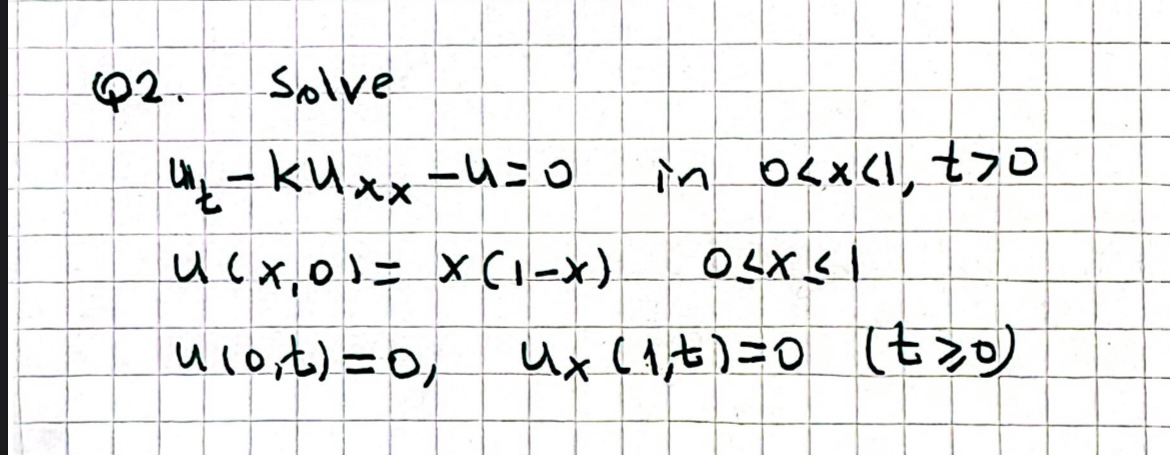 Q2. Solve
u_t - k u_xx - u = 0 in 0<x<1, t>0
u(x,0) = x(1-x) 0≤x≤1
u(0,t) = 0, u_x(1,t) = 0 (t≥0)